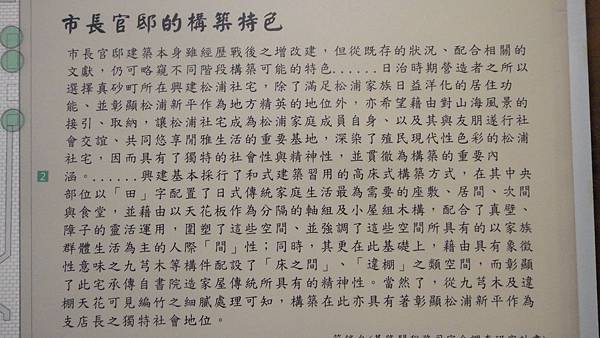 市長官邸的構築特色
市長官邸建築本身雖經歷戰後之增改建，但從既存的狀況、配合相關的
文獻，仍可略窺不同階段構築可能的特色......日治時期營造者之所以
選擇真砂町所在興建松浦社宅，除了滿足松浦家族日益洋化的居住功
能、並彰顯松浦新平作為地方精英的地位外，亦希望藉由對山海風景的
接引、取納，讓松浦社宅成為松浦家庭成員自身、以及其與友朋遂行社
會交誼、共同悠享閒雅生活的重要基地，深染了殖民現代性色彩的松浦
社宅，因而具有了獨特的社會性與精神性，並貫徹為構築的重要內
涵。......興建基本採行了和式建築習用的高床式構築方式，在其中央
部位以「田」字配置了日式傳統家庭生活最為需要的座敷、居間、次間
與食堂，並藉由以天花板作為分隔的軸組及小屋組木構，配合了真壁、
障子的靈活運用，圍塑了這些空間、並強調了這些空間所具有的以家族
群體生活為主的人際「間」性；同時，其更在此基礎上，藉由具有象徵
性意味之九芎木等構件配設了「床之間」、「違棚」之類空間，而彰顯
了此宅承傳自書院造家屋傳統所具有的精神性。當然了，從九芎木及違
棚天花可見編竹之細膩處理可知，構築在此亦具有著彰顯松浦新平作為
支店長之獨特社會地位。
2